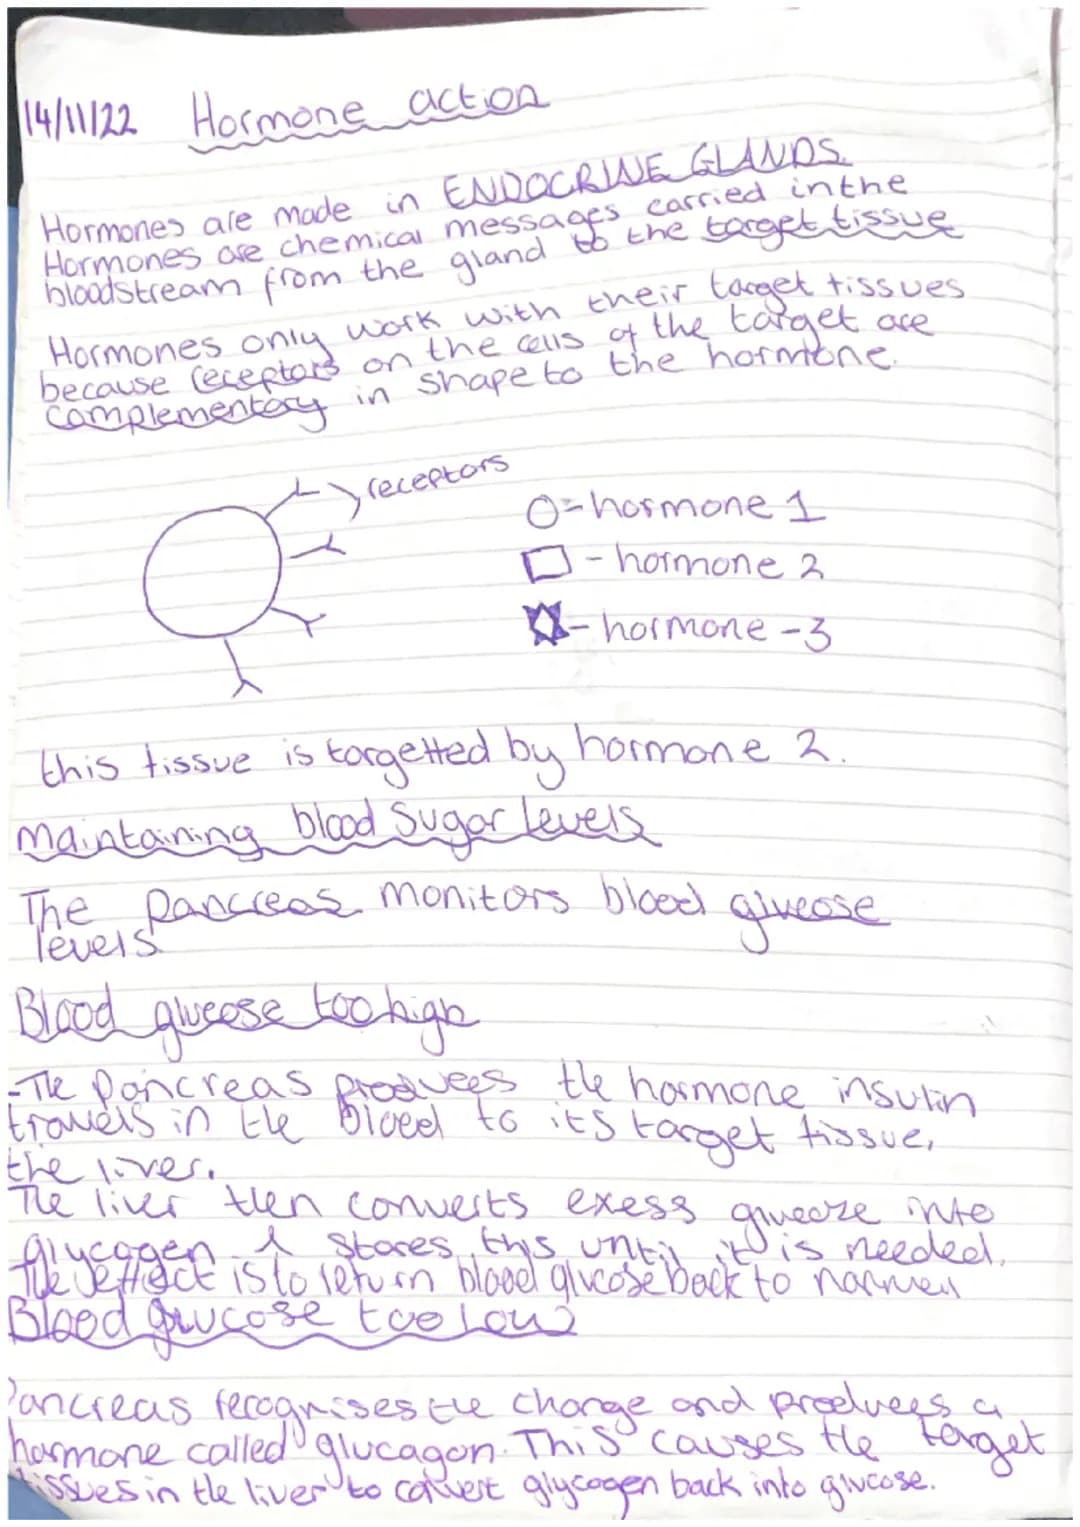 14/11/22 Hormone action
Hormones are made in ENDOCRINE GLANDS.
Hormones are chemical messages carried in the
bloodstream from the gland to the target tissue
Hormones only work with their target tissues
because receptors on the cells of the target are
complementary in shape to the hormone.
receptors
O=hormone 1
- hormone 2
- hormone -3
this tissue is targetted by hormone 2.
maintaining blood Sugar levels
The pancreas monitors blood glucose
levels
Blood glucose too high
-The pancreas produces the hormone insulin
travels in the blood to its target tissue,
the liver.
The liver then converts exess glucoze into
glycogen & stores this until it is needed.
The effect is to return blood glucose back to normal
Blood glucose too low
Pancreas recognises the change and produces a
hormone called glucagon. This causes the target
tissues in the liver to convert glycogen back into glucose.